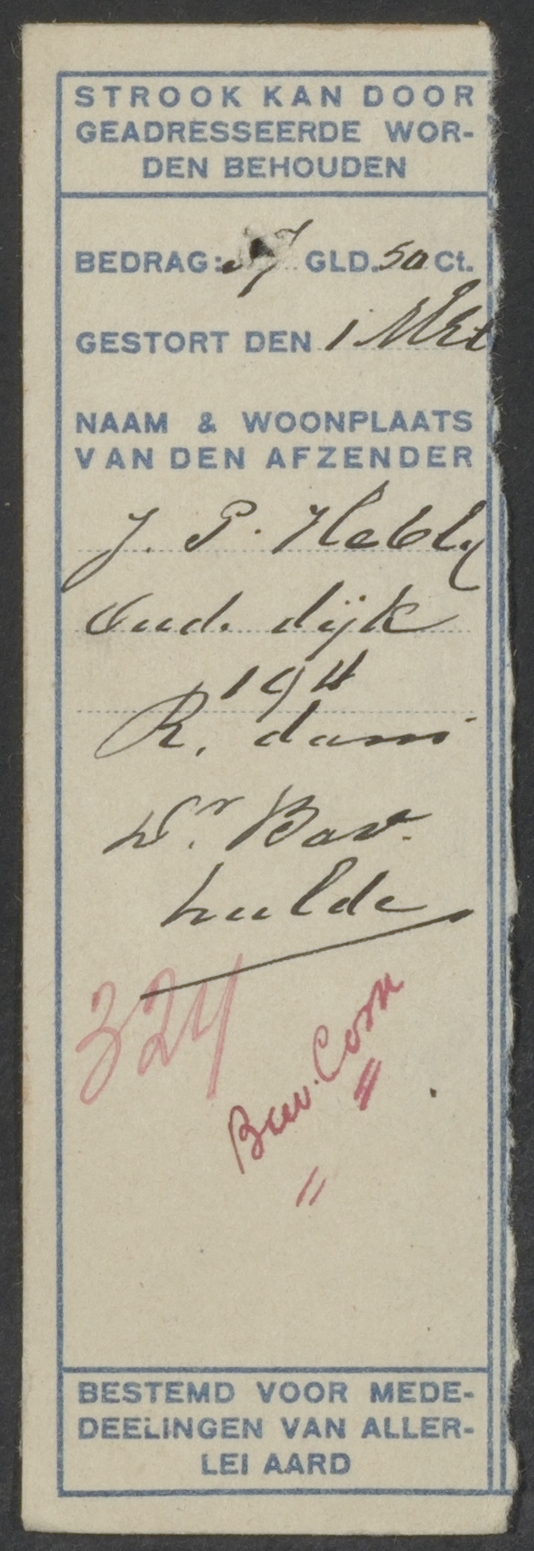 STROOK KAN DOOR
GEADRESSEERDE WOR-
DEN BEHOUDEN
BEDRAG: 37 GLD. 50 Ct.
GESTORT DEN 1 Mrt
NAAM & WOONPLAATS
VAN DEN AFZENDER
J. P. Hebly
Oud. dijk
194
R. dam
Dr. Bav.
hulde
324
Buv. Com
BESTEMD VOOR MEDE-
DEELINGEN VAN ALLER-
LEI AARD